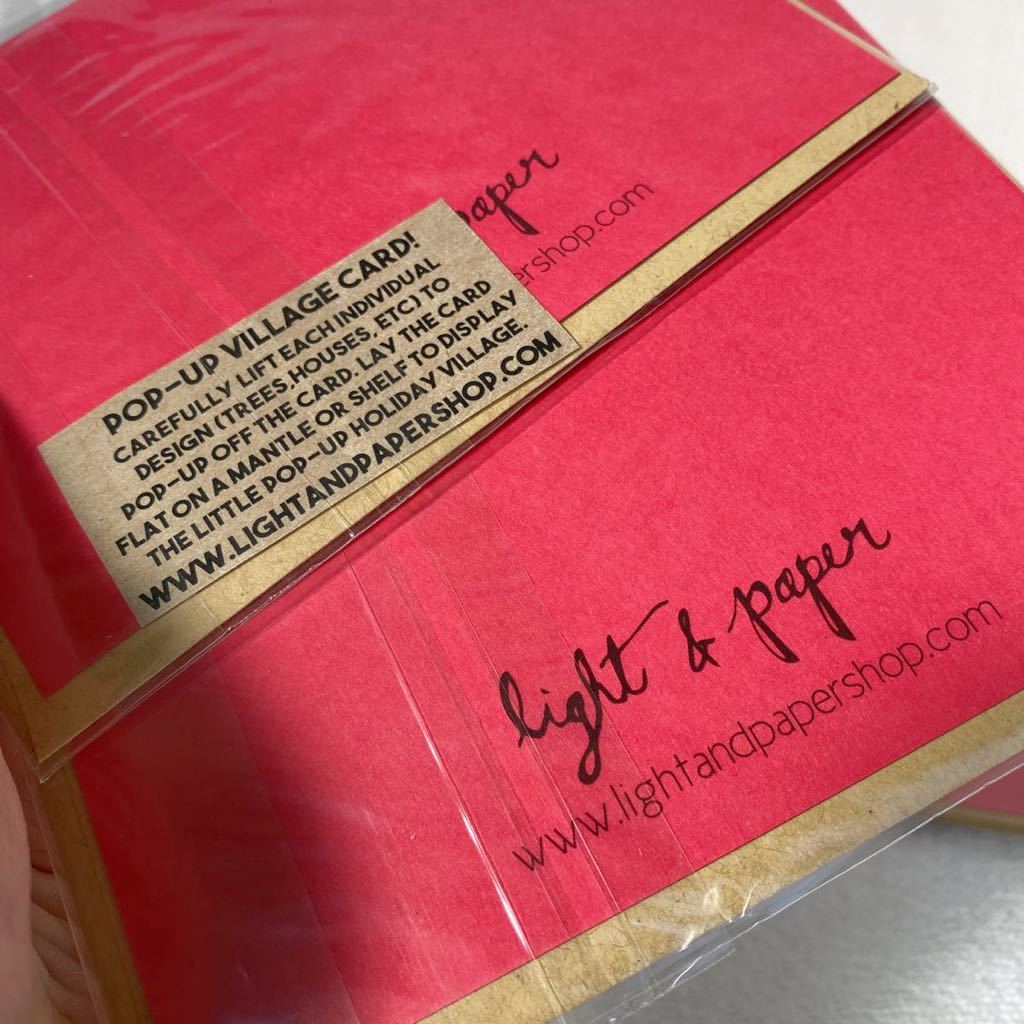 paper
ershop.com
POP-UP VILLAGE CARD!
CAREFULLY LIFT EACH INDIVIDUAL
DESIGN (TREES,HOUSES, ETC) TO
POP-UP OFF THE CARD. LAY THE CARD
FLAT ON A MANTLE OR SHELF TO DISPLAY
THE LITTLE POP-UP HOLIDAY VILLAGE.
WWW.LIGHTANDPAPERSHOP.COM
light & paper
www.lightandpapershop.com